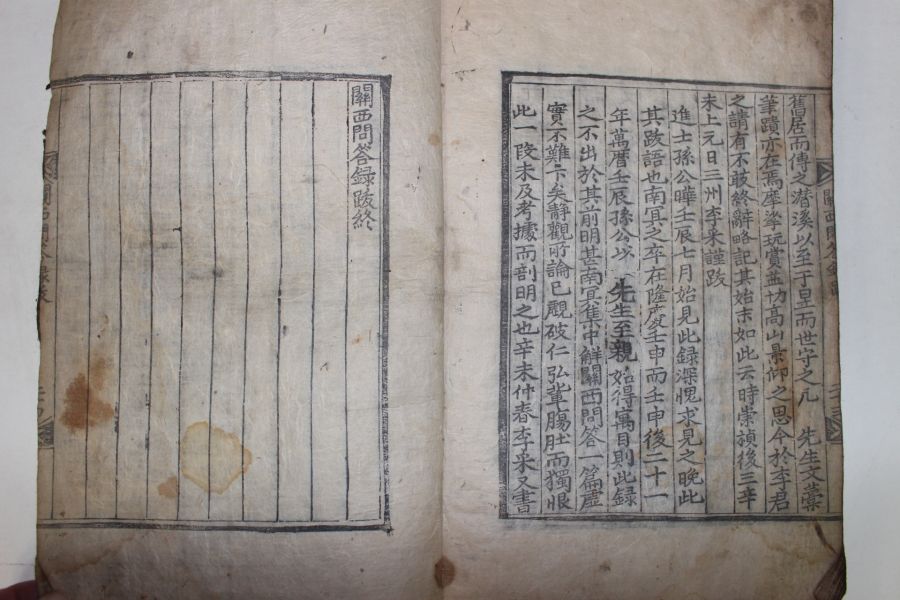 舊居而傳之潛溪以至于星而世守之凡　先生文藁
筆蹟亦在焉摩挲玩賞益切高山景仰之思今於李君
之請有不敢終辭略記其始末如此云時崇禎後三辛
未上元日三州李采謹跋
進士孫公曄壬辰七月始見此録深恨求見之晚此
其跋語也南冥之卒在隆慶壬申而壬申後二十一
年萬曆壬辰孫公以　先生至親始得寓目則此録
之不出於其前明甚南冥集中解關西問答一篇虛
實不難卞矣靜觀所論已覷破仁弘輩膓肚而獨恨
此一段未及考據而剖明之也辛未仲春李采又書
關西問答録跋終
關西問答録跋